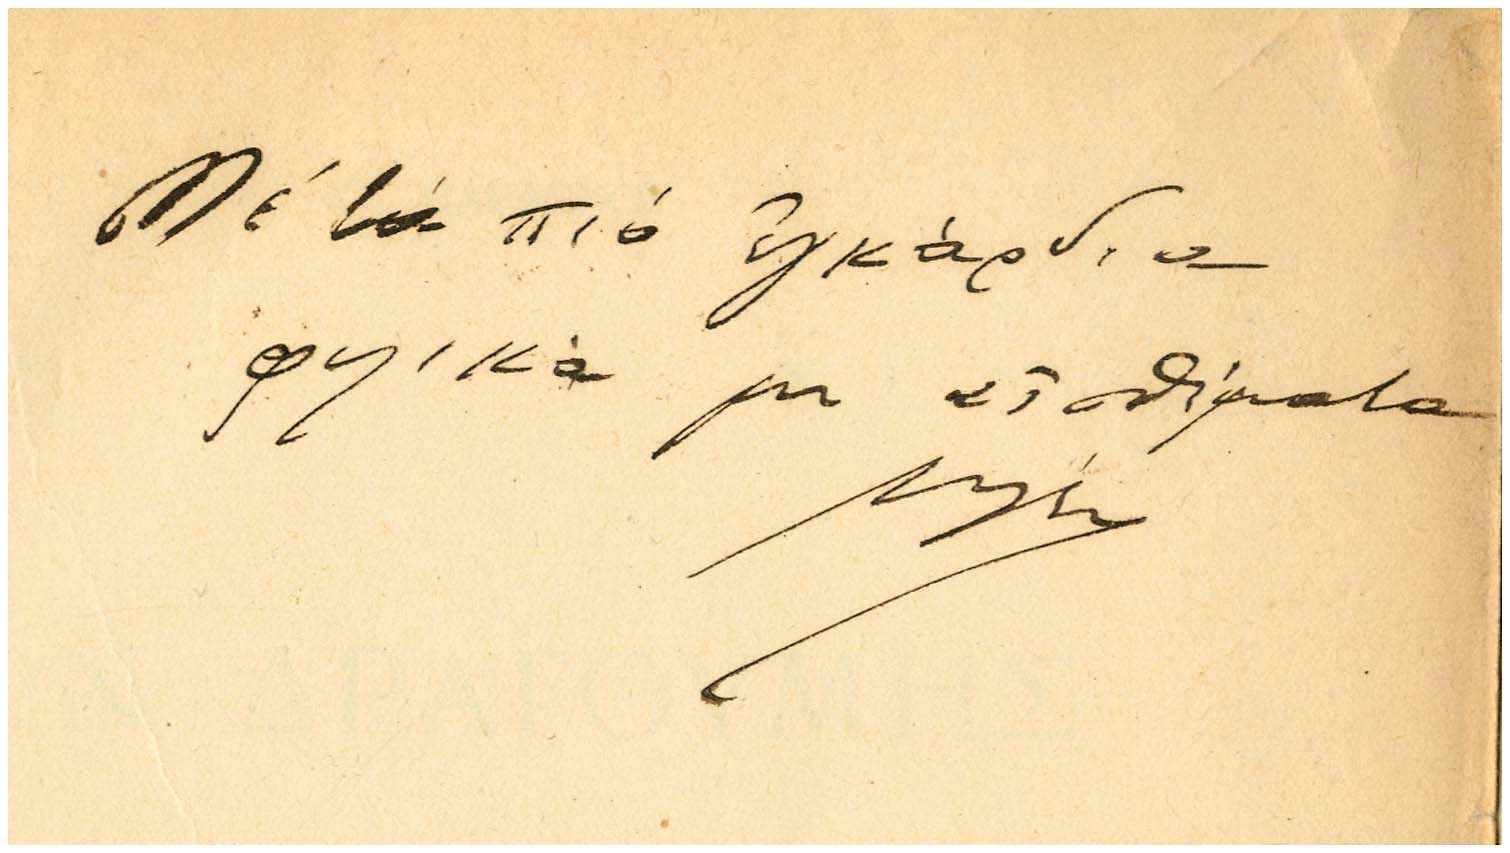 Μέ τά πιό ἐγκάρδια
φιλικά μου αἰσθήματα
Ν. ΔΡΑΓΟΥΜΗΣ